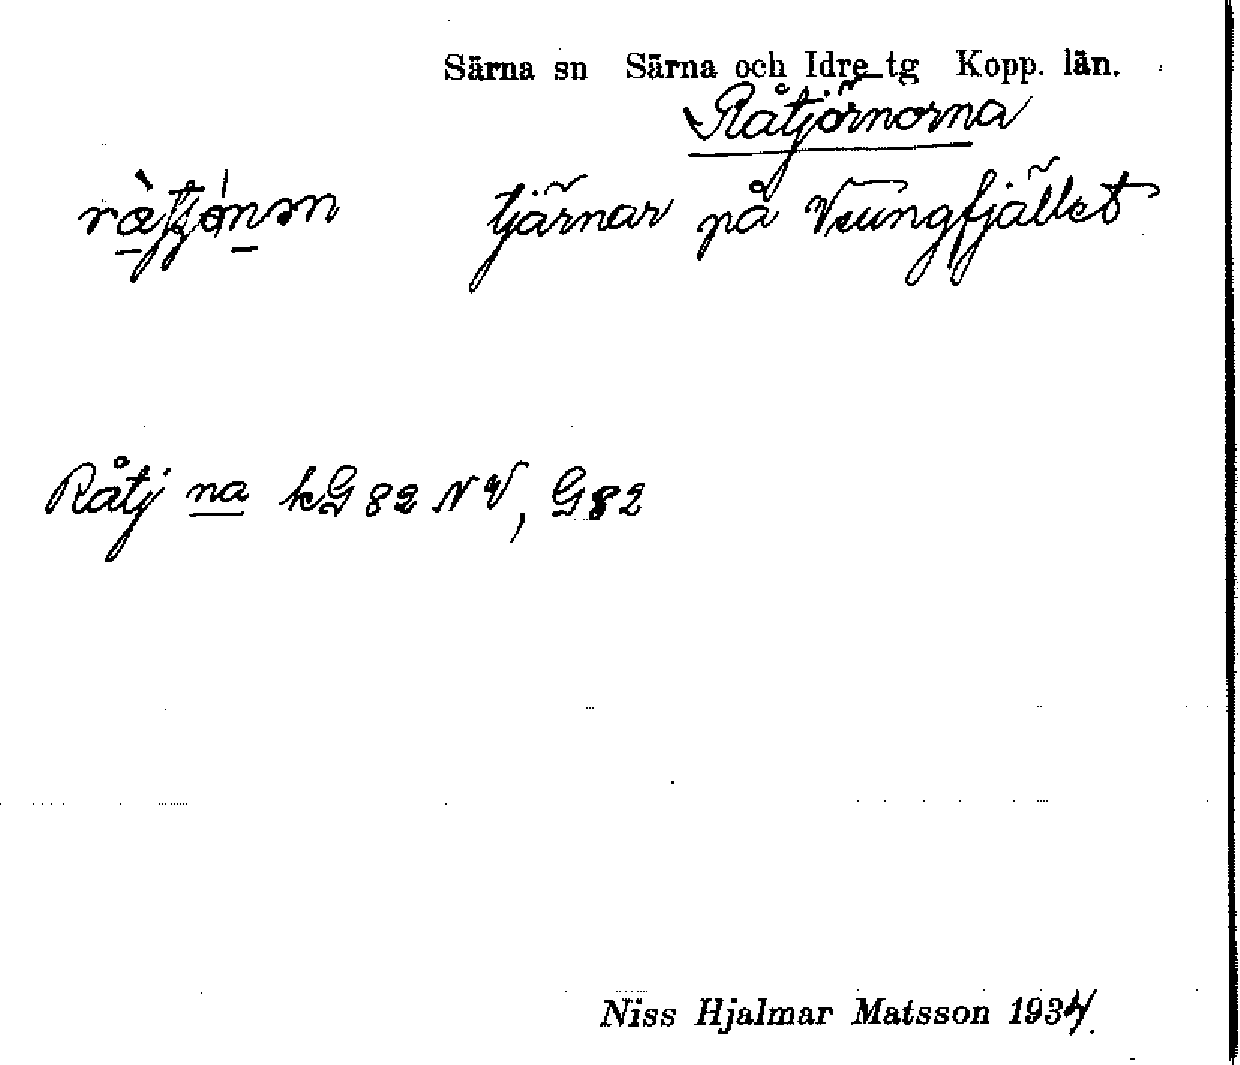 Särna sn Särna och Idre tg Kopp. län.
Råtjörnorna
tjärnar på Veungfjället
Råtj na kG82 NV, G82
Niss Hjalmar Matsson 1934.